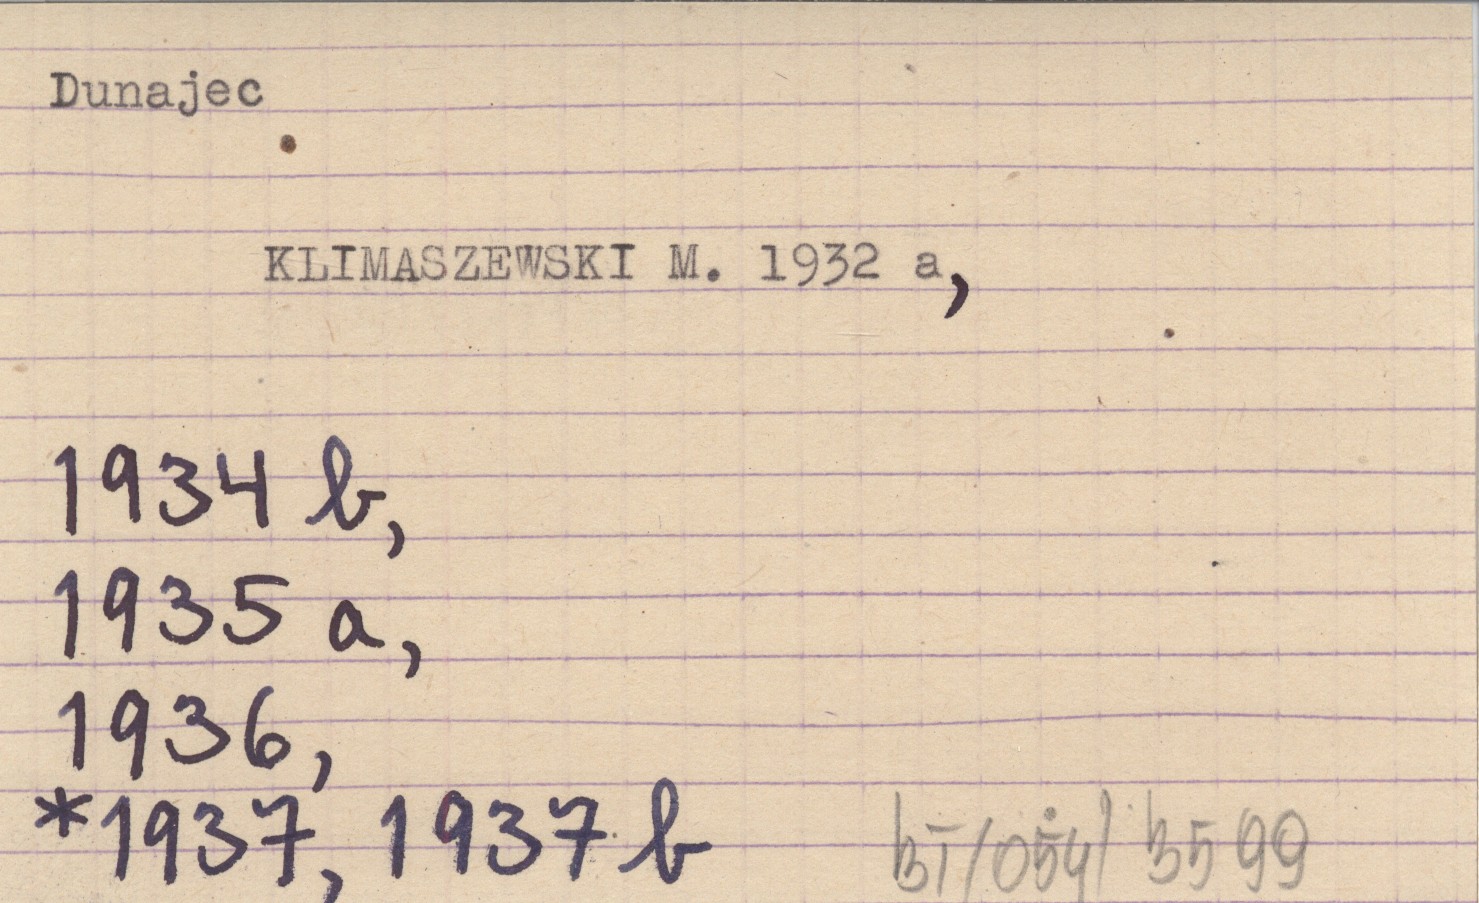 Dunajec
KLIMASZEWSKI M. 1932 a,
1934 b,
1935 a,
1936,
*1937, 1937 b
3599